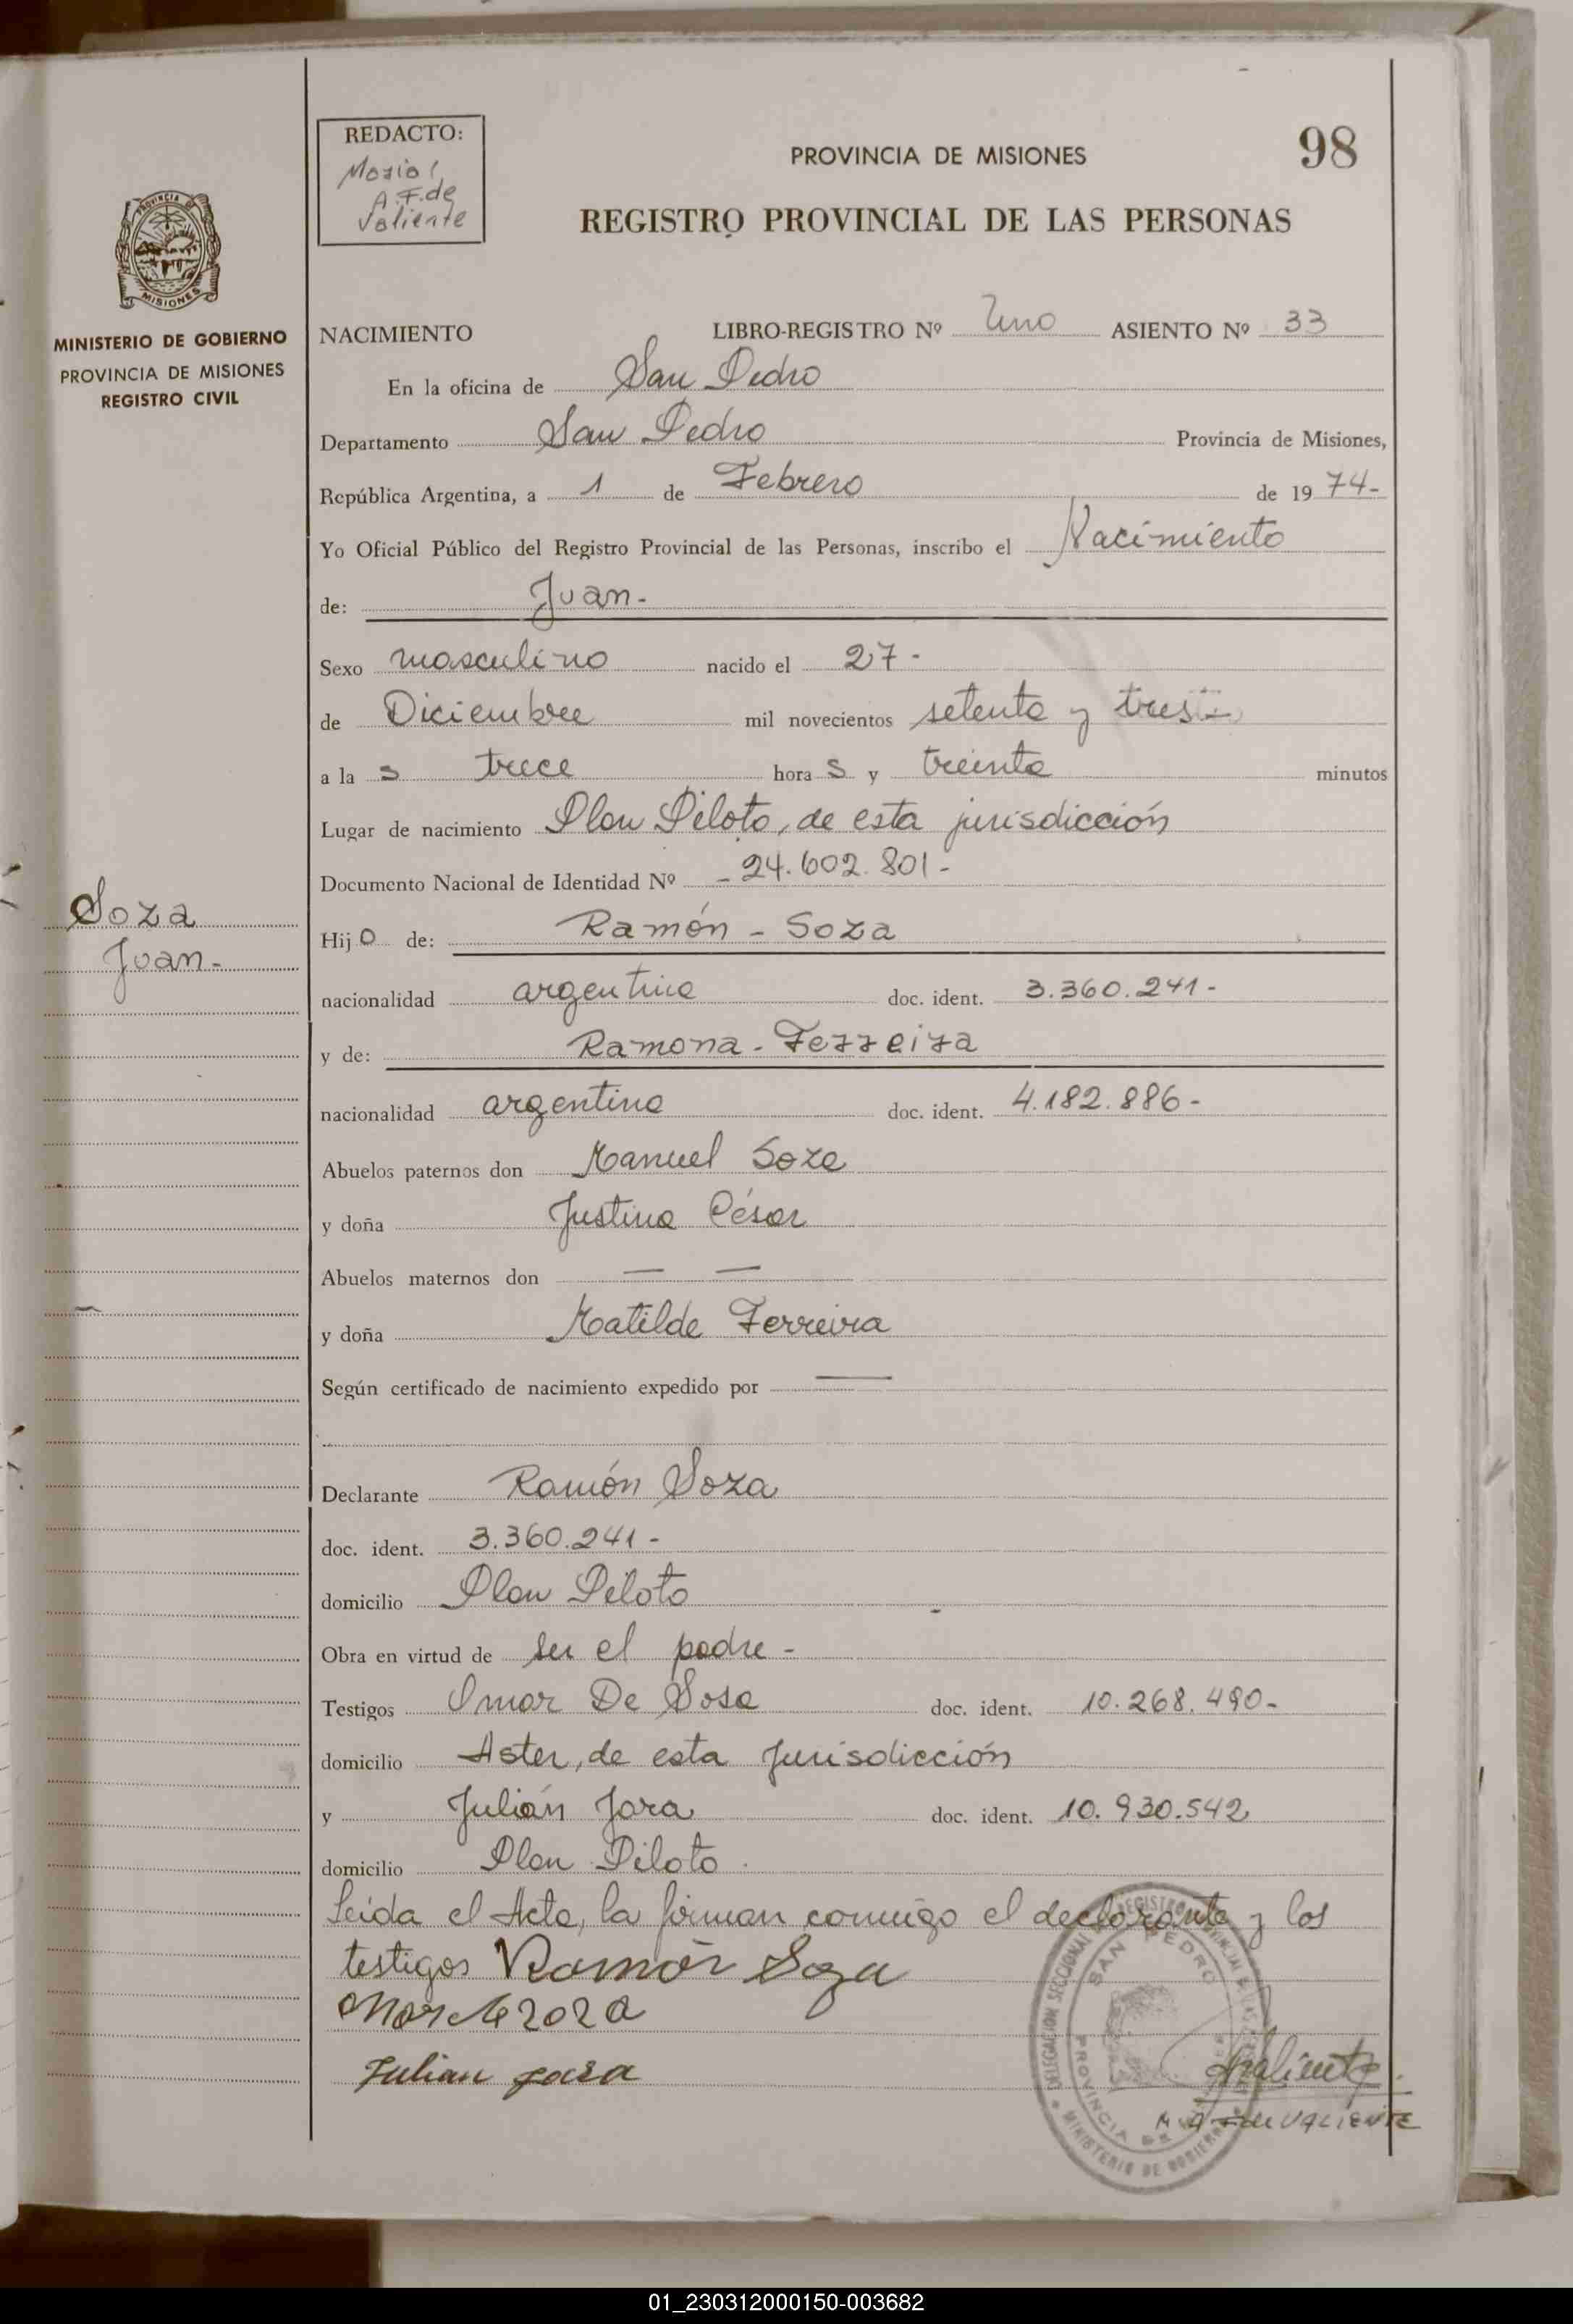 98
REDACTO:
A. F. de
Valiente
PROVINCIA DE MISIONES
REGISTRO PROVINCIAL DE LAS PERSONAS
PROVINCIA DE
MISIONES
MINISTERIO DE GOBIERNO
PROVINCIA DE MISIONES
REGISTRO CIVIL
NACIMIENTO LIBRO-REGISTRO Nº Uno ASIENTO Nº 33
En la oficina de San Pedro
Departamento San Pedro Provincia de Misiones,
República Argentina, a 1 de Febrero de 1974-
Yo Oficial Público del Registro Provincial de las Personas, inscribo el Nacimiento
de: Juan-
Sexo masculino nacido el 27-
de Diciembre mil novecientos setenta y tres
a las trece horas y treinta minutos
Lugar de nacimiento Plan Piloto, de esta jurisdicción
Documento Nacional de Identidad Nº -24.602.801-
Soza
Juan-
Hijo de: Ramón - Soza
nacionalidad argentina doc. ident. 3.360.241-
y de: Ramona - Ferreira
nacionalidad argentina doc. ident. 4.182.886-
Abuelos paternos don Manuel Soza
y doña Justina César
Abuelos maternos don — —
y doña Matilde Ferreira
Según certificado de nacimiento expedido por —
Declarante Ramón Soza
doc. ident. 3.360.241-
domicilio Plan Piloto
Obra en virtud de ser el padre-
Testigos Omar De Sosa doc. ident. 10.268.490-
domicilio Aster, de esta jurisdicción
y Julián Jara doc. ident. 10.930.542
domicilio Plan Piloto.
Leída el Acta, la firman conmigo el declarante y los
testigos Ramón Soza
Julian Jara
Valiente
M. A. F. de VALIENTE
DELEGACION SECCIONAL REGISTRO PROVINCIAL DE LAS
SAN PEDRO
PROVINCIA DE
MINISTERIO DE GOBIERNO
01_230312000150-003682